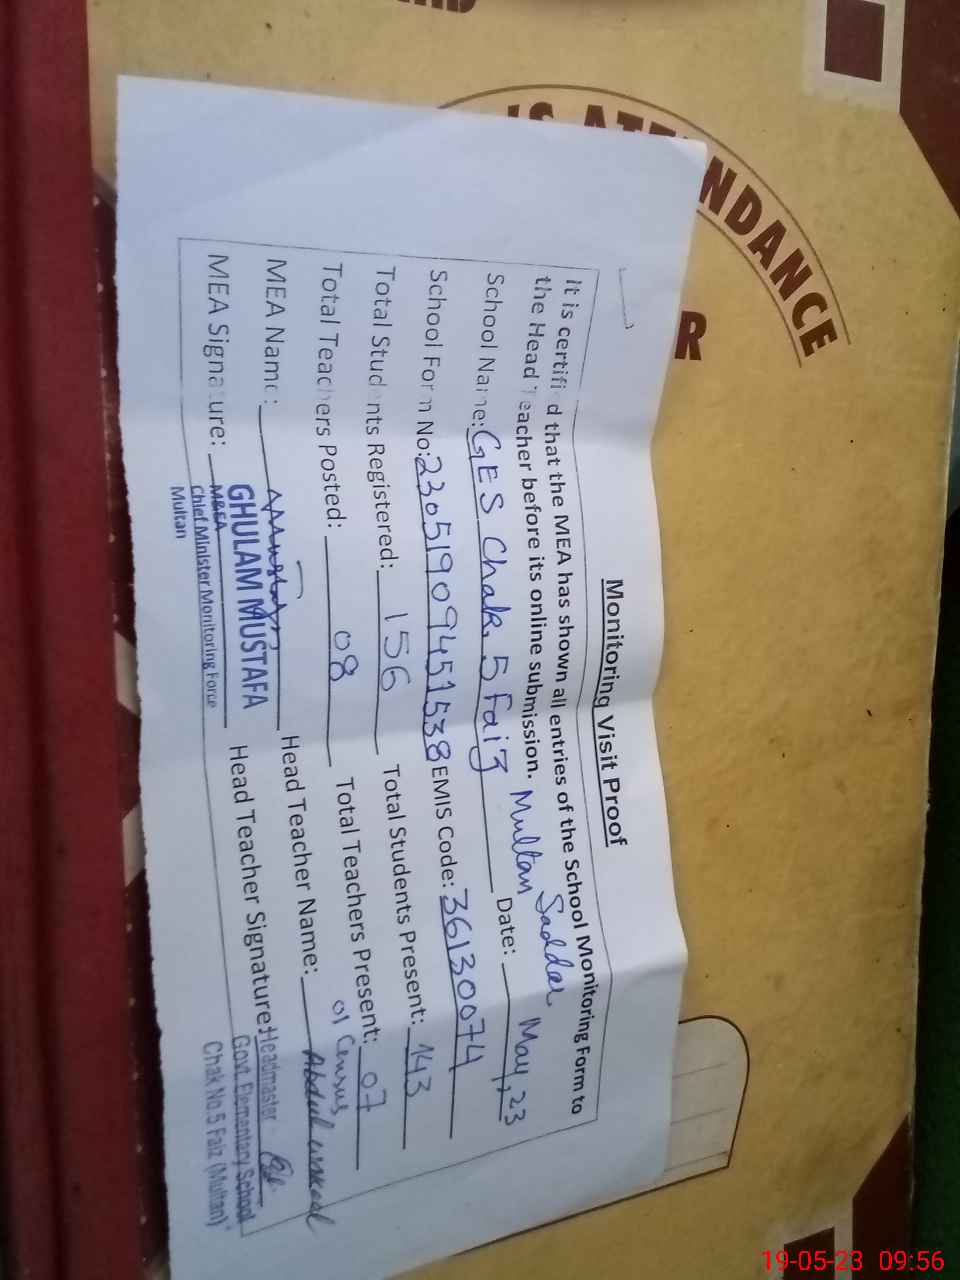 Monitoring Visit Proof
It is certified that the MEA has shown all entries of the School Monitoring Form to
the Head Teacher before its online submission. Multan Saddar
School Name: GES Chak. 5 Faiz Date: May, 23
School Form No: 23051909451538 EMIS Code: 36130074
Total Students Registered: 156 Total Students Present: 143
Total Teachers Posted: 08 Total Teachers Present: 07
01 Census
MEA Name: Head Teacher Name: Abdul
MEA Signature: Head Teacher Signature:
GHULAM MUSTAFA
M&EA
Chief Minister Monitoring Force
Multan
Headmaster
Govt. Elementary School
Chak No.5 Faiz (Multan)
NDANCE
R
19-05-23 09:56